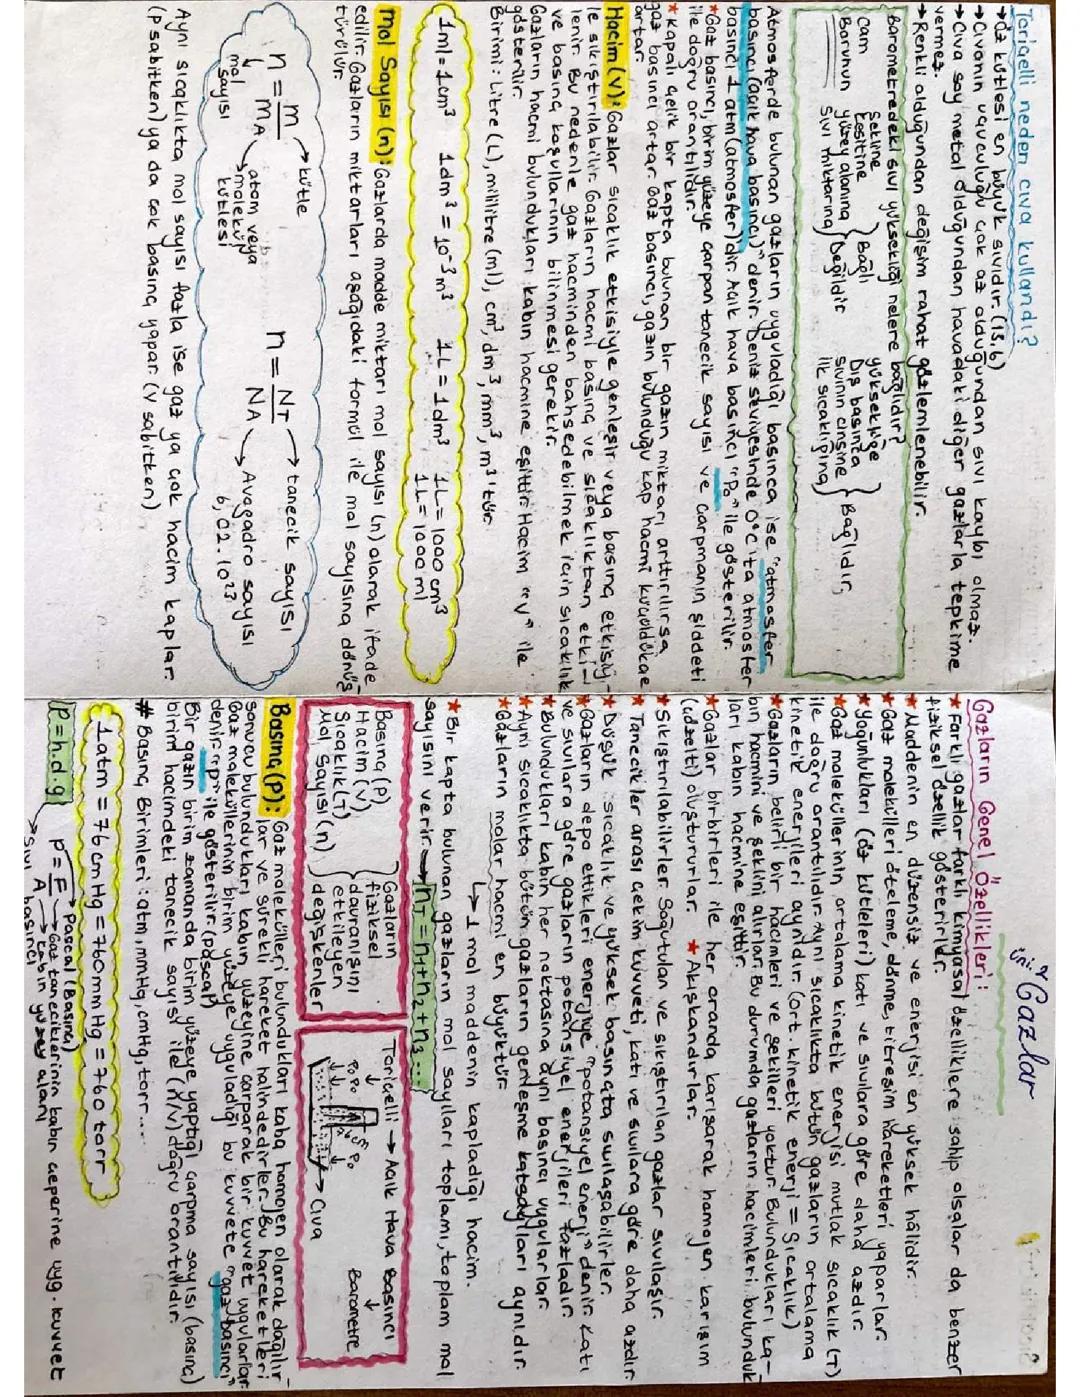 Üni.2 Gazlar
Gazların Genel Özellikleri:
★ Farklı gazlar farklı kimyasal özelliklere sahip olsalar da benzer
fiziksel özellik gösterirler.
★ Maddenin en düzensiz ve enerjisi en yüksek hâlidir.
★ Gaz molekülleri öteleme, dönme, titreşim hareketleri yaparlar.
★ Yoğunlukları (öz kütleleri) katı ve sıvılara göre daha azdır.
★ Gaz moleküllerinin ortalama kinetik enerjisi mutlak sıcaklık (T)
ile doğru orantılıdır. Aynı sıcaklıkta bütün gazların ortalama
kinetik enerjileri aynıdır. (ort. kinetik enerji = Sıcaklık)
★ Gazların belirli bir hacimleri ve şekilleri yoktur. Bulundukları ka-
bın hacmini ve şeklini alırlar. Bu durumda gazların hacimleri, bulunduk
ları kabın hacmine eşittir.
★ Gazlar birbirleri ile her oranda karışarak homojen karışım
(çözelti) oluştururlar. ★ Akışkandırlar.
★ Sıkıştırılabilirler. Soğutulan ve sıkıştırılan gazlar sıvılaşır.
★ Tanecikler arası çekim kuvveti, katı ve sıvılara göre daha azdır.
★ Düşük sıcaklık ve yüksek basınçta sıvılaşabilirler.
★ Gazların depo ettikleri enerjiye "potansiyel enerji" denir. Katı
ve sıvılara göre gazların potansiyel enerjileri fazladır.
★ Bulundukları kabın her noktasına aynı basıncı uygularlar.
★ Aynı sıcaklıkta bütün gazların genleşme katsayıları aynıdır.
★ Gazların molar hacmi en büyüktür.
↳ 1 mol maddenin kapladığı hacim.
★ Bir kapta bulunan gazların mol sayıları toplamı, toplam mol
sayısını verir. → nT = n1 + n2 + n3 ...
Basınç (P) Gazların
Hacim (V) fiziksel
Sıcaklık (T) davranışını
Mol Sayısı (n) etkileyen
değişkenler
Toricelli → Açık Hava Basıncı
Barometre
P0 P0 P0
76 cm
→ Civa
Basınç (P): Gaz molekülleri bulundukları kaba homojen olarak dağılır-
lar ve sürekli hareket halindedirler. Bu hareketleri
sonucu bulundukları kabın, yüzeyine çarparak bir kuvvet uygularlar.
Gaz moleküllerinin birim yüzeye uyguladığı bu kuvvete "gaz basıncı"
denir. "P" ile gösterilir. (pascal)
Bir gazın birim zamanda birim yüzeye yaptığı çarpma sayısı (basınç)
birim hacimdeki tanecik sayısı ile (n/v) doğru orantılıdır.
# Basınç Birimleri: atm, mmHg, cmHg, torr....
1 atm = 76 cm Hg = 760 mm Hg = 760 torr
P = h.d.g
→ Sıvı basıncı
P = F/A → Pascal (Basınç)
→ Gaz taneciklerinin kabın çeperine uyg. kuvvet
→ Kabın yüzey alanı
Toriçelli neden civa kullandı?
→ Öz kütlesi en büyük sıvıdır. (13,6)
→ Civanın uçuculuğu çok az olduğundan sıvı kaybı olmaz.
→ Civa soy metal olduğundan havadaki diğer gazlarla tepkime
vermez.
→ Renkli olduğundan değişim rahat gözlemlenebilir.
Barometredeki sıvı yüksekliği nelere bağlıdır?
Cam Borunun
Şekline
Kesitine
Yüzey alanına
Sıvı miktarına
Bağlı Değildir
Yüksekliğe
Dış basınca
Sıvının cinsine
ilk sıcaklığına
Bağlıdır.
Atmosferde bulunan gazların uyguladığı basınca ise "atmosfer
basıncı (açık hava basıncı)" denir. Deniz seviyesinde 0°C'ta atmosfer
basıncı 1 atm (atmosfer)'dir. Açık hava basıncı "P0" ile gösterilir.
★ Gaz basıncı, birim yüzeye çarpan tanecik sayısı ve çarpmanın şiddeti
ile doğru orantılıdır.
★ Kapalı çelik bir kapta bulunan bir gazın miktarı arttırılırsa,
gaz basıncı artar. Gaz basıncı, gazın bulunduğu kap hacmi küçüldükçe
artar.
Hacim (V): Gazlar sıcaklık etkisiyle genleşir veya basınç etkisiy-
le sıkıştırılabilir. Gazların hacmi basınç ve sıcaklıktan etki-
lenir. Bu nedenle gaz hacminden bahsedebilmek için sıcaklık
ve basınç koşullarının bilinmesi gerekir.
Gazların hacmi bulundukları kabın hacmine eşittir. Hacim "V" ile
gösterilir.
Birimi: Litre (L), mililitre (ml), cm³, dm³, mm³, m³'tür.
1ml = 1cm³ 1dm³ = 10⁻³ m³ 1L = 1dm³ 1L = 1000 cm³
1L = 1000 ml
Mol Sayısı (n): Gazlarda madde miktarı mol sayısı (n) olarak ifade
edilir. Gazların miktarları aşağıdaki formül ile mol sayısına dönüş-
türülür.
n = m/MA → kütle
→ atom veya molekül kütlesi
mol sayısı
n = NT/NA → tanecik sayısı
→ Avogadro sayısı
6,02.10²³
Aynı sıcaklıkta mol sayısı fazla ise gaz ya çok hacim kaplar.
(P sabitken) ya da çok basınç yapar. (V sabitken)